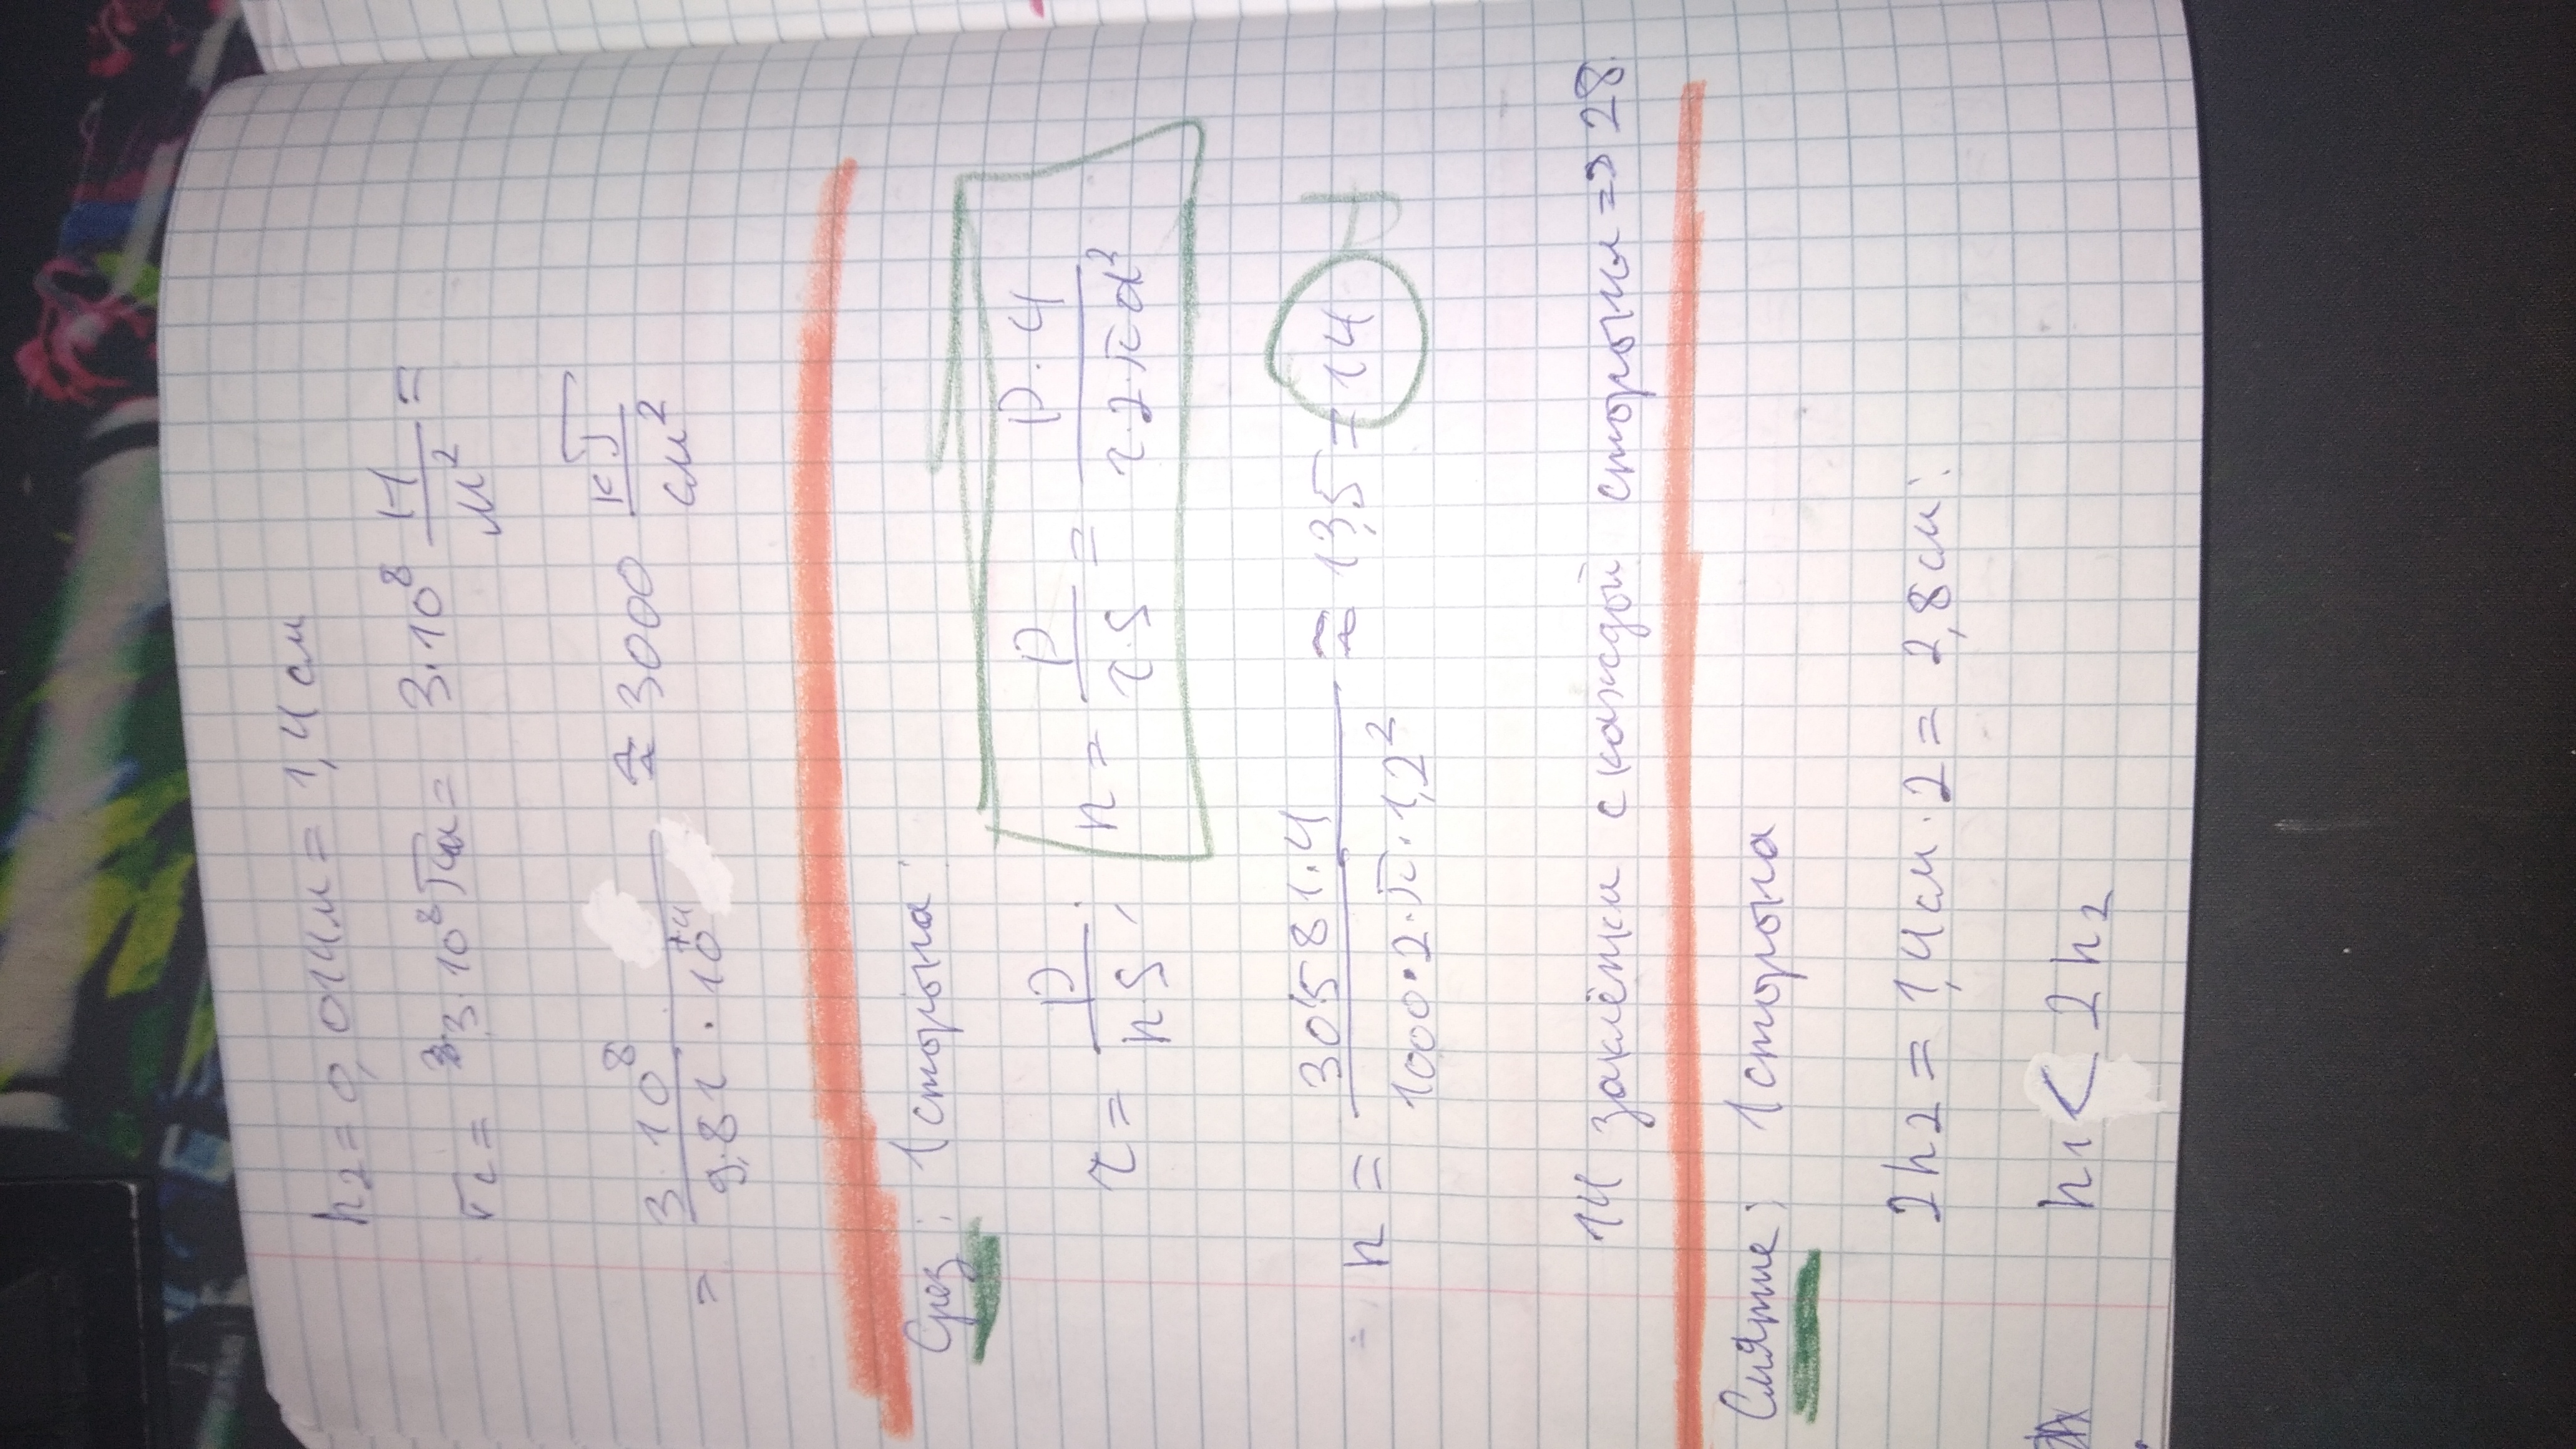 h₂ = 0,014м = 1,4 см
= 3·10⁸ Па = 3·10⁸ Н/м² =
= 3·10⁸ / 9,81·10⁺⁴ ≈ 3000 кГ/см²
Срез: 1 сторона:
τ = P/n·S; n = P/τ·S = P·4/τ·2·πd²
n = 30581·4 / 1000·2·π·1,2² ≈ 13,5 = 14
14 заклёпки с каждой стороны => 28
Смятие: 1 сторона
2h₂ = 1,4см·2 = 2,8см:
h₁ < 2h₂